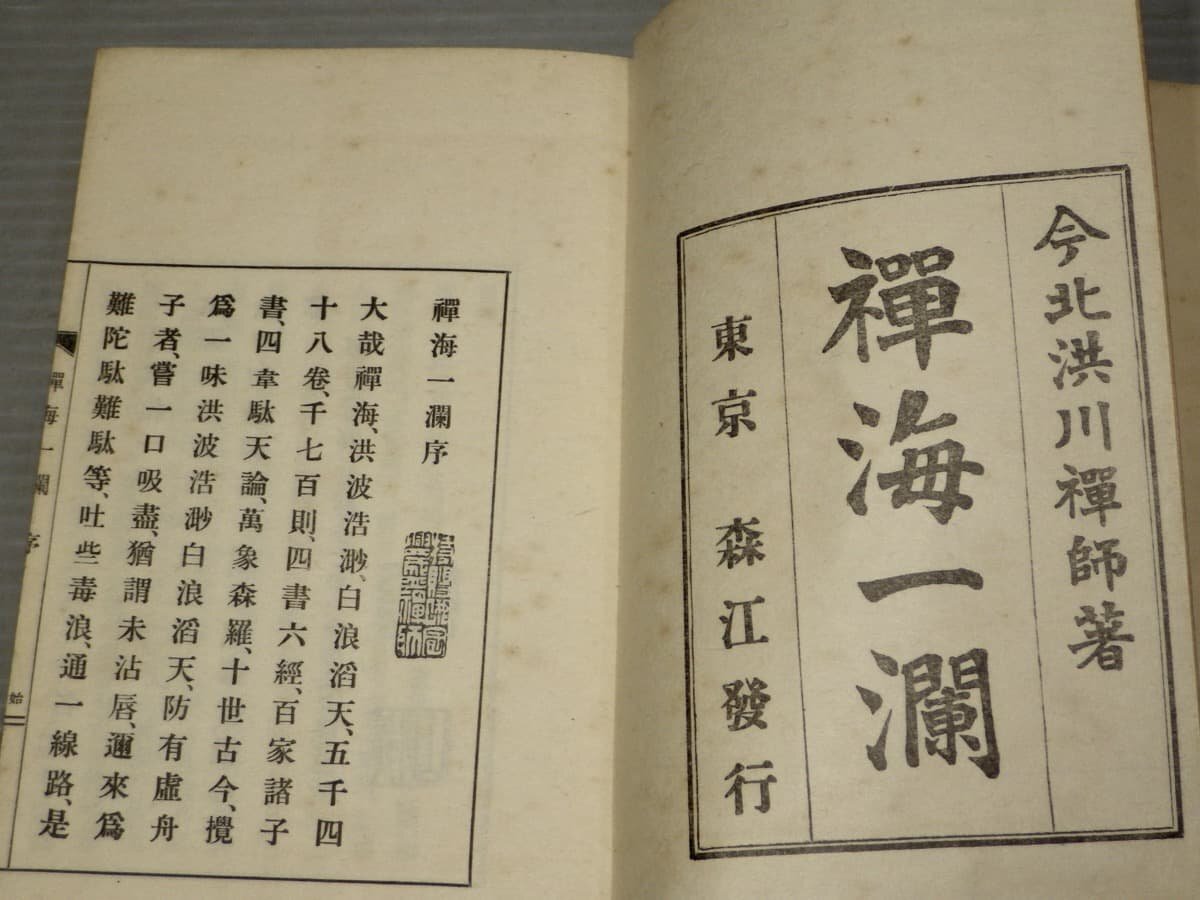 今北洪川禪師著
禪海一瀾
東京 森江發行
禪海一瀾序
大哉禪海、洪波浩渺、白浪滔天、五千四
十八卷、千七百則、四書六經、百家諸子
書、四韋駄天論、萬象森羅、十世古今、攪
爲一味洪波浩渺白浪滔天、防有虛舟
子者、嘗一口吸盡、猶謂未沾唇、邇來爲
難陀駄難駄等、吐些毒浪、通一線路、是
禪海一瀾序
始